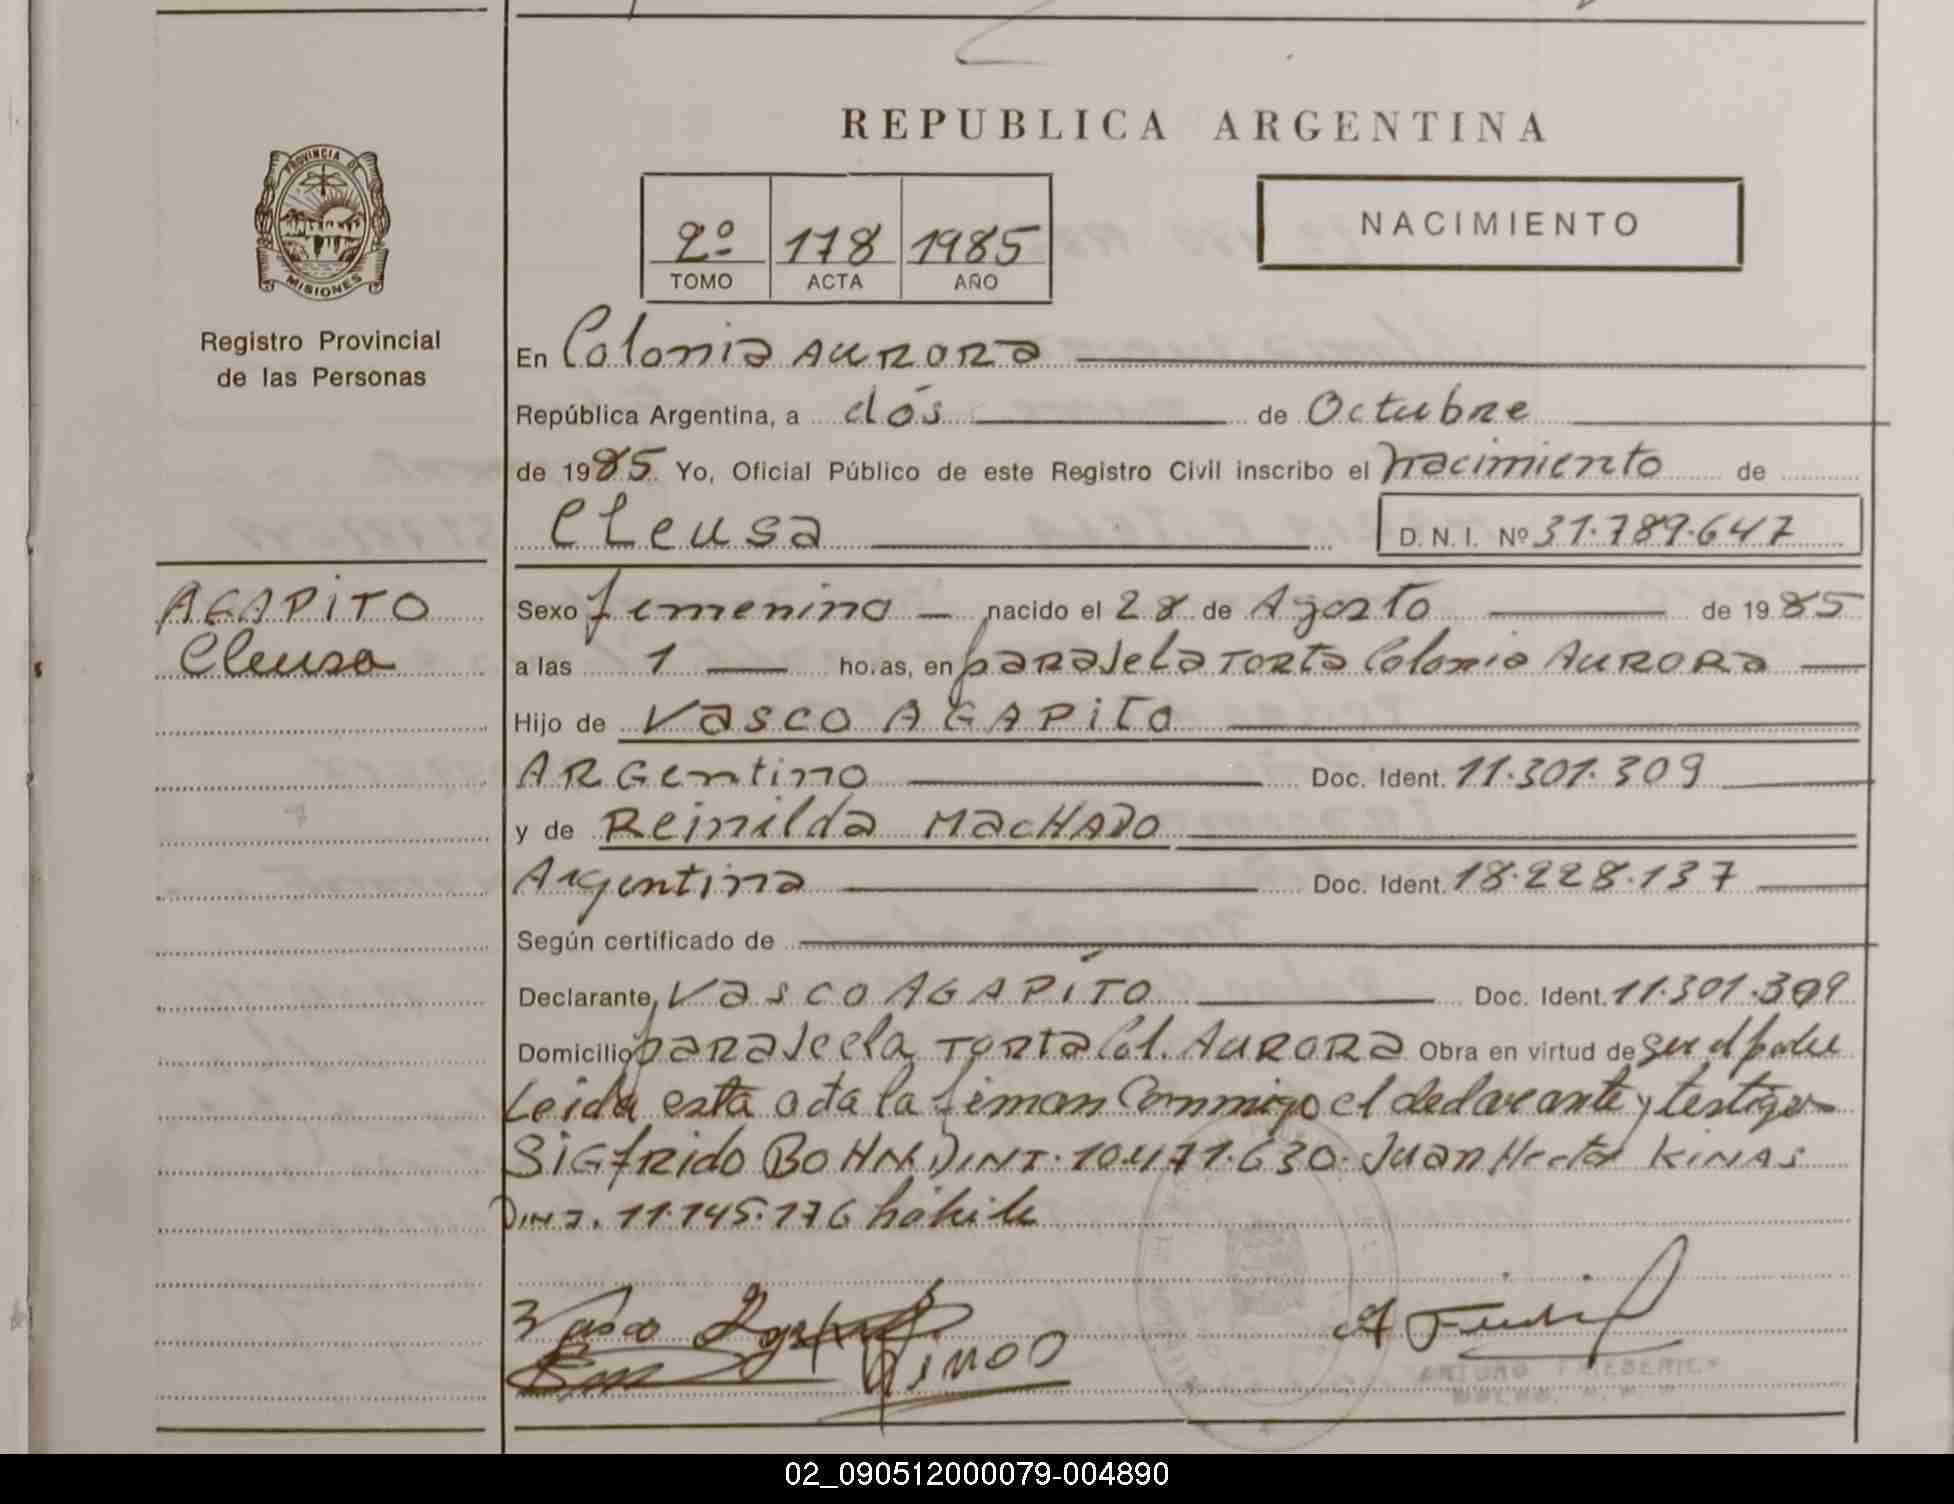 REPUBLICA ARGENTINA
PROVINCIA DE
MISIONES
Registro Provincial
de las Personas
2º 178 1985
TOMO ACTA AÑO
NACIMIENTO
En Colonia AURORA
República Argentina, a dós de Octubre
de 1985 Yo, Oficial Público de este Registro Civil inscribo el nacimiento de
Cleusa D. N. I. Nº 31.789.647
AGAPITO
Cleusa
Sexo femenino nacido el 28 de Agosto de 1985
a las 1 ho.as, en paraje la Torta Colonia AURORA
Hijo de Vasco AGAPITO
ARGentino Doc. Ident. 11.301.309
y de Reinilda MacHADO
Argentina Doc. Ident. 18.228.137
Según certificado de
Declarante, Vasco AGAPITO Doc. Ident. 11.301.309
Domicilio paraje la Torta Col. AURORA Obra en virtud de ser el padre
Leida esta acta la firman Conmigo el declarante y testigos
SiGfrido BOHN D.N.I. 10.471.630. Juan Hector KINAS
D.N.I. 11.145.176
Vasco
ARTURO
02_090512000079-004890